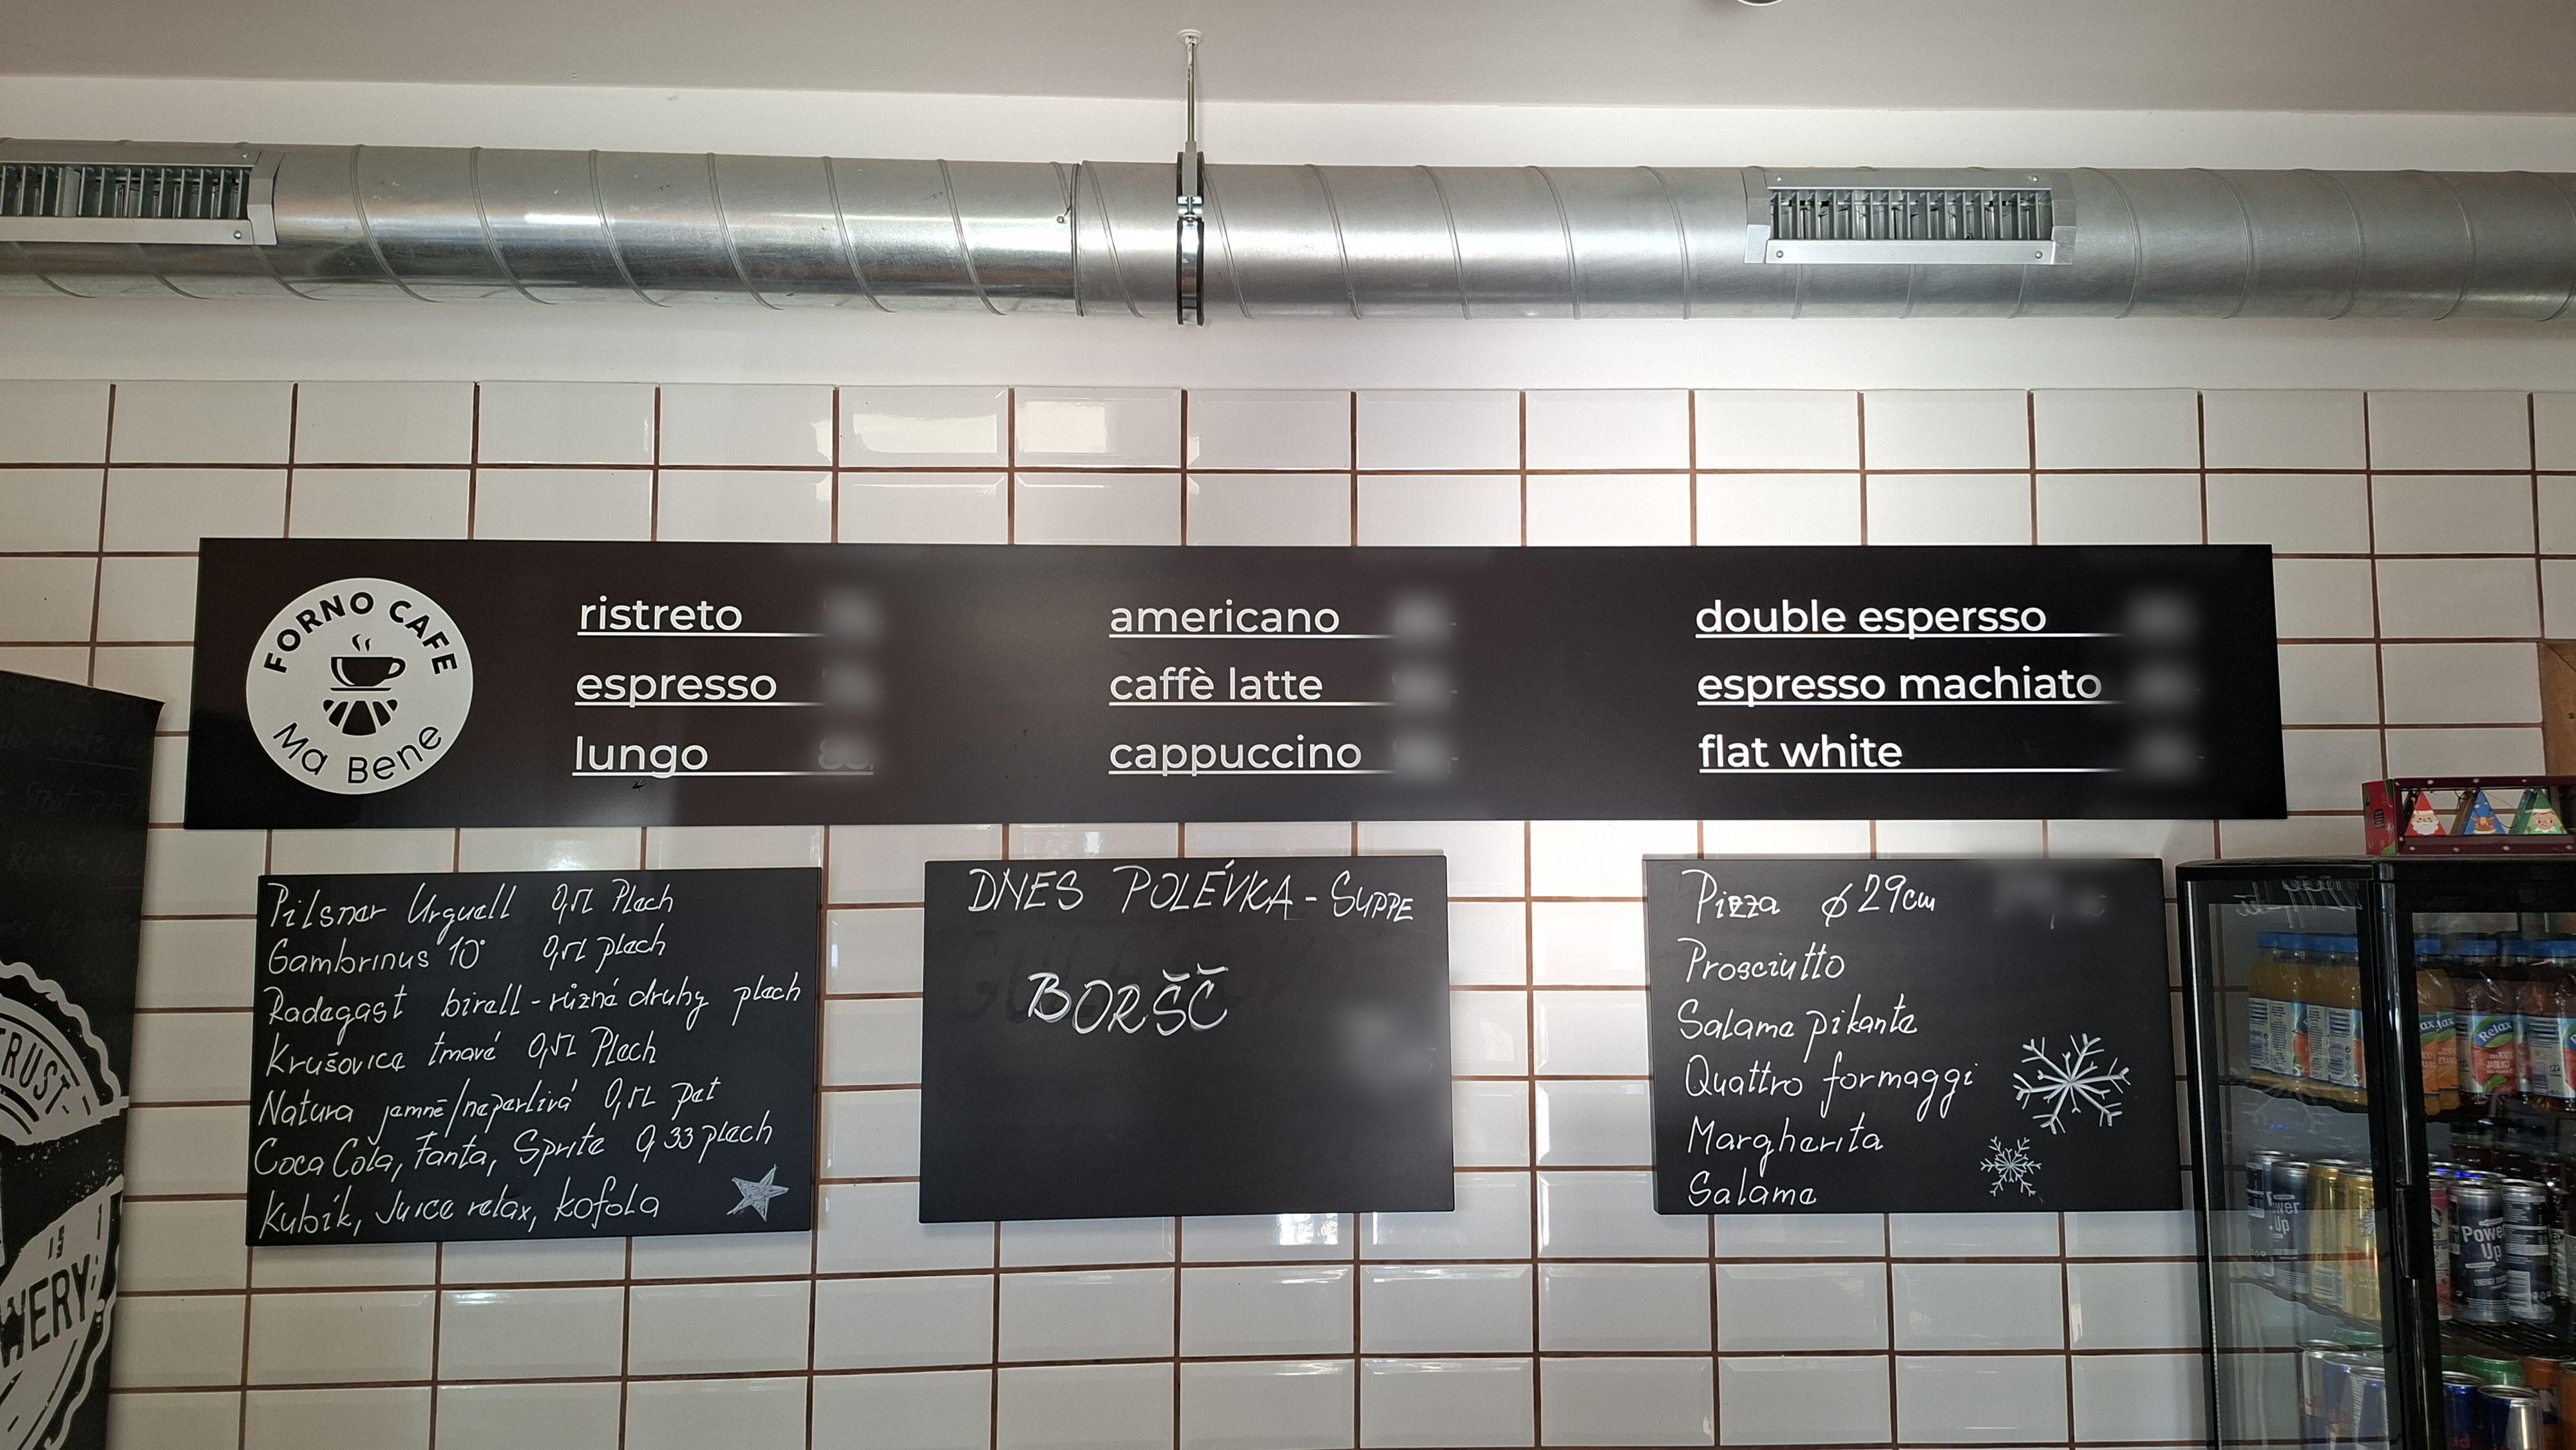 FORNO CAFE
Ma Bene
ristreto
espresso
lungo
americano
caffè latte
cappuccino
double espersso
espresso machiato
flat white
Pilsner Urquell 0,5L Plech
Gambrinus 10° 0,5L plech
Radegast birell - různé druhy plech
Krušovice tmavé 0,5L Plech
Natura jemně/neperlivá 0,5L pet
Coca Cola, Fanta, Sprite 0,33 plech
Kubík, Juice relax, kofola
DNES POLÉVKA - SUPPE
BORŠČ
Pizza ⌀ 29cm
Prosciutto
Salame pikante
Quattro formaggi
Margherita
Salame
TRUST
IS
WERY
Relax
Power
Up